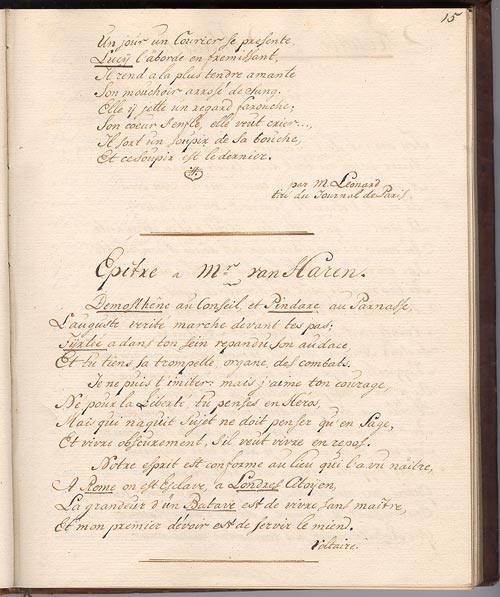 15
Un jour un Courier se presente,
Lucÿ l'aborde en fremissant,
Il rend a la plus tendre amante
Son mouchoir arrosé de sang.
Elle ÿ jette un regard farouche;
Son coeur s'enfle, elle veut crier...,
Il sort un soupir de sa bouche,
Et ce soupir est le dernier.
par M. Léonard
tiré du Journal de Paris
Epitre a Mr. van Haren.
Demosthéne au Conseil et Pindare au Parnasse,
L'auguste verité marche devant tes pas;
Tyrtée a dans ton sein repandu son audace,
Et tu tiens sa trompette, organe des combats.
Je ne puis t'imiter: mais j'aime ton courage,
Né pour la Liberté tu penses en Heros,
Mais qui naquit Sujet ne doit penser qu'en Sage,
Et vivre obscurement, s'il veut vivre en repos.
Notre esprit est conforme au lieu qui l'a vu naître,
A Rome on est Esclave, a Londres Citoyen,
La grandeur d'un Batave est de vivre sans maître,
Et mon premier devoir est de servir le mien.
Voltaire.